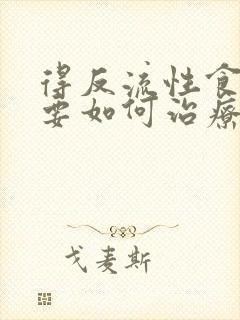 得反流性食
要如何治療
戈麦斯